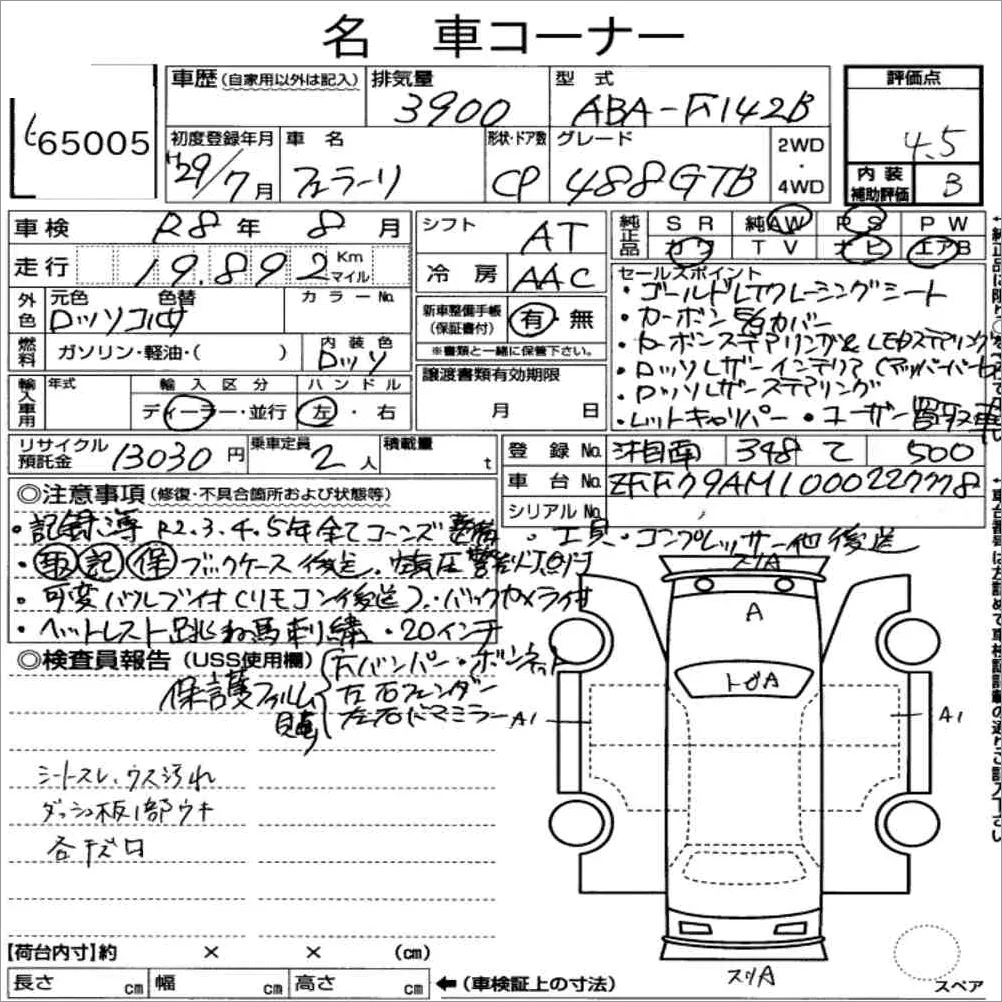 名 車コーナー
ヒ65005
車歴 (自家用以外は記入) 排気量 3900 型式 ABA-F142B
初度登録年月 H29/7月 車名 フェラーリ 形状・ドア数 CP グレード 488GTB 2WD・4WD
評価点 4.5
内装補助評価 B
車検 R8年 8月
走行 19,892 Km マイル
シフト AT
冷房 AAC
純正品 SR 純AW PS PW
カワ TV ナビ エアB
外色 元色 色替 ロッソコルサ カラーNo.
燃料 ガソリン・軽油・( ) 内装色 ロッソ
新車整備手帳 (保証書付) 有・無
※書類と一緒に保管下さい。
輸入車用 年式 輸入区分 ディーラー・並行 ハンドル 左・右
譲渡書類有効期限 月 日
セールスポイント
・ゴールドLTクレーシングシート
・カーボンE/Gカバー
・カーボンステアリング& LEDステアリング
・ロッソレザーインテリア(アッパーパーセ
・ロッソレザーステアリング
・レットキャリパー ・ユーザー買取車
リサイクル預託金 13030円 乗車定員 2人 積載量 t
登録No. 湘南 348 て 500
車台No. ZFF79AMJ000227778
シリアルNo.
◎注意事項 (修復・不具合箇所および状態等)
・記録簿 R2.3.4.5年全てコーンズ整備 ・工具・コンプレッサー他後送
・取 記 保 ブックケース後送 ・空気圧警告灯点灯
・可変バルブ付(リモコン後送)・バックカメラ付
・ヘットレスト跳ね馬刺繍 ・20インチ
◎検査員報告 (USS使用欄)
保護フィルム貼
Fバンパー・ボンネット
左右フェンダー
左右ドアミラー
シートスレ、ウス汚れ
ダッシュ板1部ウキ
各キズ口
スリA
A
トビA
A1
A1
スリA
スペア
【荷台内寸】約 × × (cm)
長さ cm 幅 cm 高さ cm ←(車検証上の寸法)